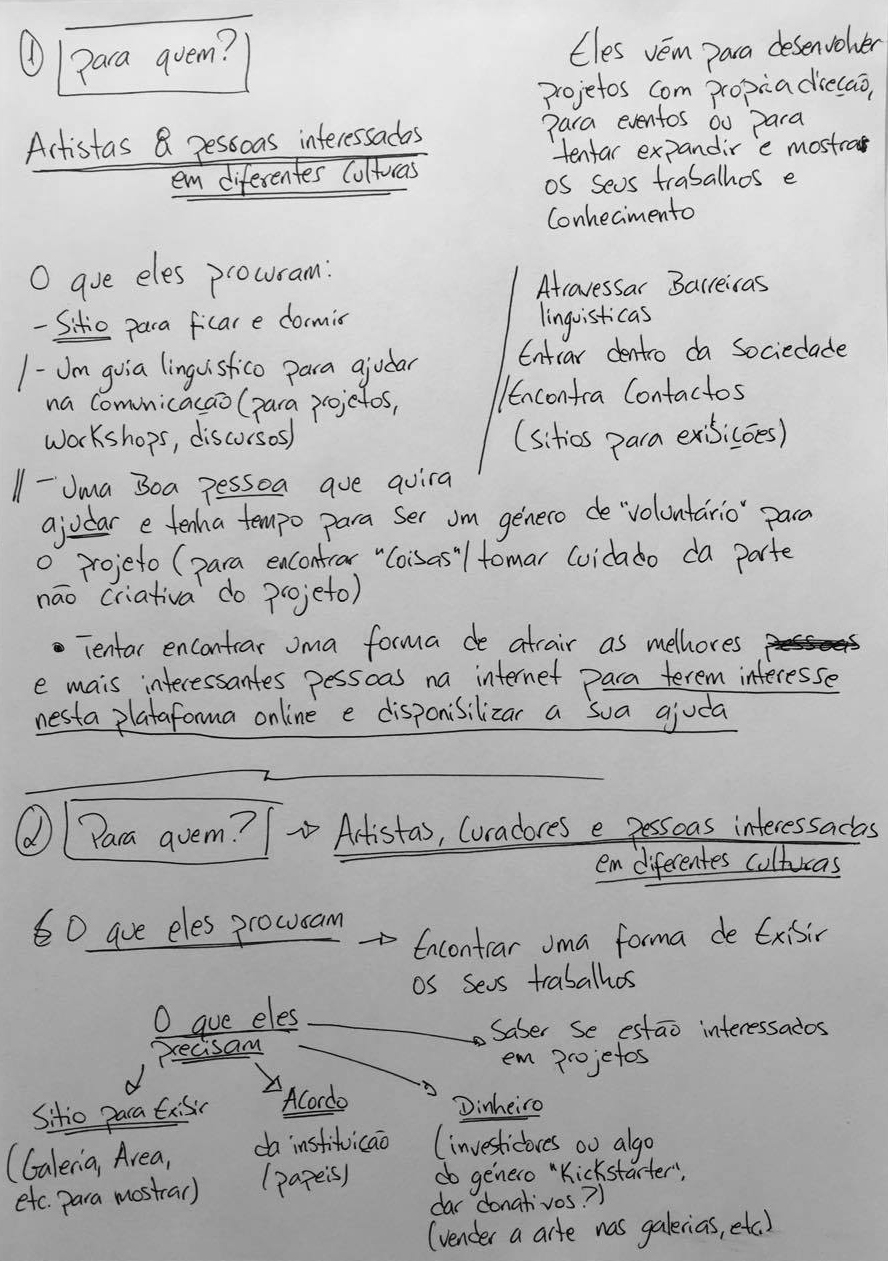 ① Para quem?
Artistas & pessoas interessadas
em diferentes Culturas
Eles vêm para desenvolver
projetos com própria direção,
para eventos ou para
tentar expandir e mostrar
os seus trabalhos e
Conhecimento
O que eles procuram:
- Sitio para ficar e dormir
/ - Um guia linguistico para ajudar
na Comunicação (para projetos,
workshops, discursos)
Atravessar Barreiras
linguisticas
Entrar dentro da Sociedade
// Encontra Contactos
(sitios para exibições)
// - Uma Boa pessoa que quira
ajudar e tenha tempo para ser um género de "voluntário" para
o projeto (para encontrar "Coisas" / tomar cuidado da parte
não criativa do projeto)
• Tentar encontrar uma forma de atrair as melhores pessoas
e mais interessantes pessoas na internet para terem interesse
nesta plataforma online e disponibilizar a sua ajuda
② Para quem? → Artistas, Curadores e pessoas interessadas
em diferentes culturas
O que eles procuram → Encontrar uma forma de Exibir
os seus trabalhos
O que eles
precisam
Saber se estão interessados
em projetos
Sitio para Exibir
(Galeria, Area,
etc. para mostrar)
Acordo
da instituição
(papeis)
Dinheiro
(investidores ou algo
do género "Kickstarter",
dar donativos?)
(vender a arte nas galerias, etc.)